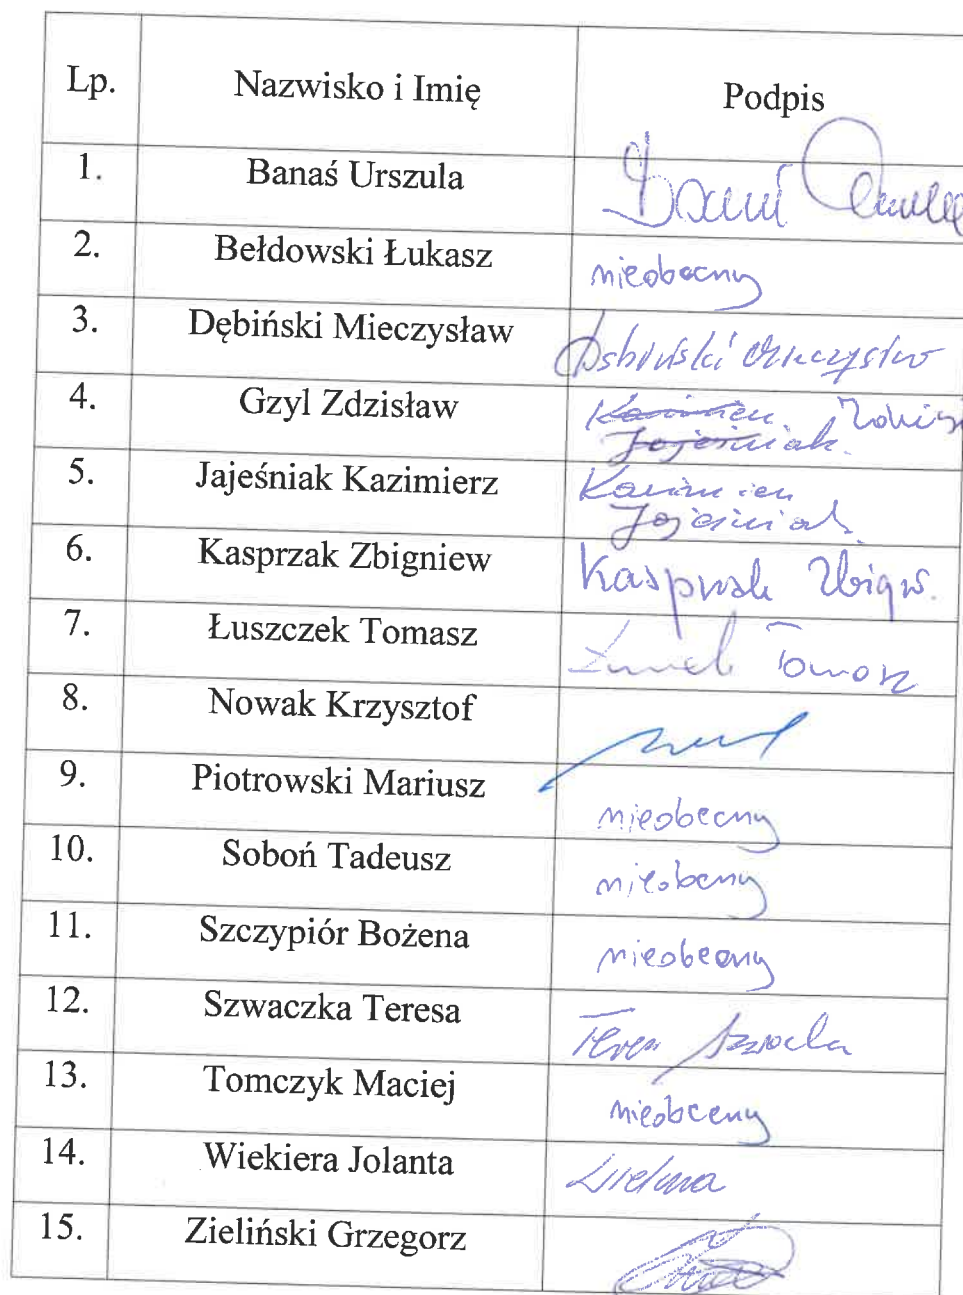 Lp. Nazwisko i Imię Podpis
1. Banaś Urszula
2. Bełdowski Łukasz nieobecny
3. Dębiński Mieczysław Dębiński Mieczysław
4. Gzyl Zdzisław Kazimierz
Jajeśniak
5. Jajeśniak Kazimierz Kazimierz
Jajeśniak
6. Kasprzak Zbigniew Kasprzak Zbign.
7. Łuszczek Tomasz Tomasz
8. Nowak Krzysztof
9. Piotrowski Mariusz nieobecny
10. Soboń Tadeusz nieobecny
11. Szczypiór Bożena nieobecny
12. Szwaczka Teresa Teresa
13. Tomczyk Maciej nieobecny
14. Wiekiera Jolanta
15. Zieliński Grzegorz